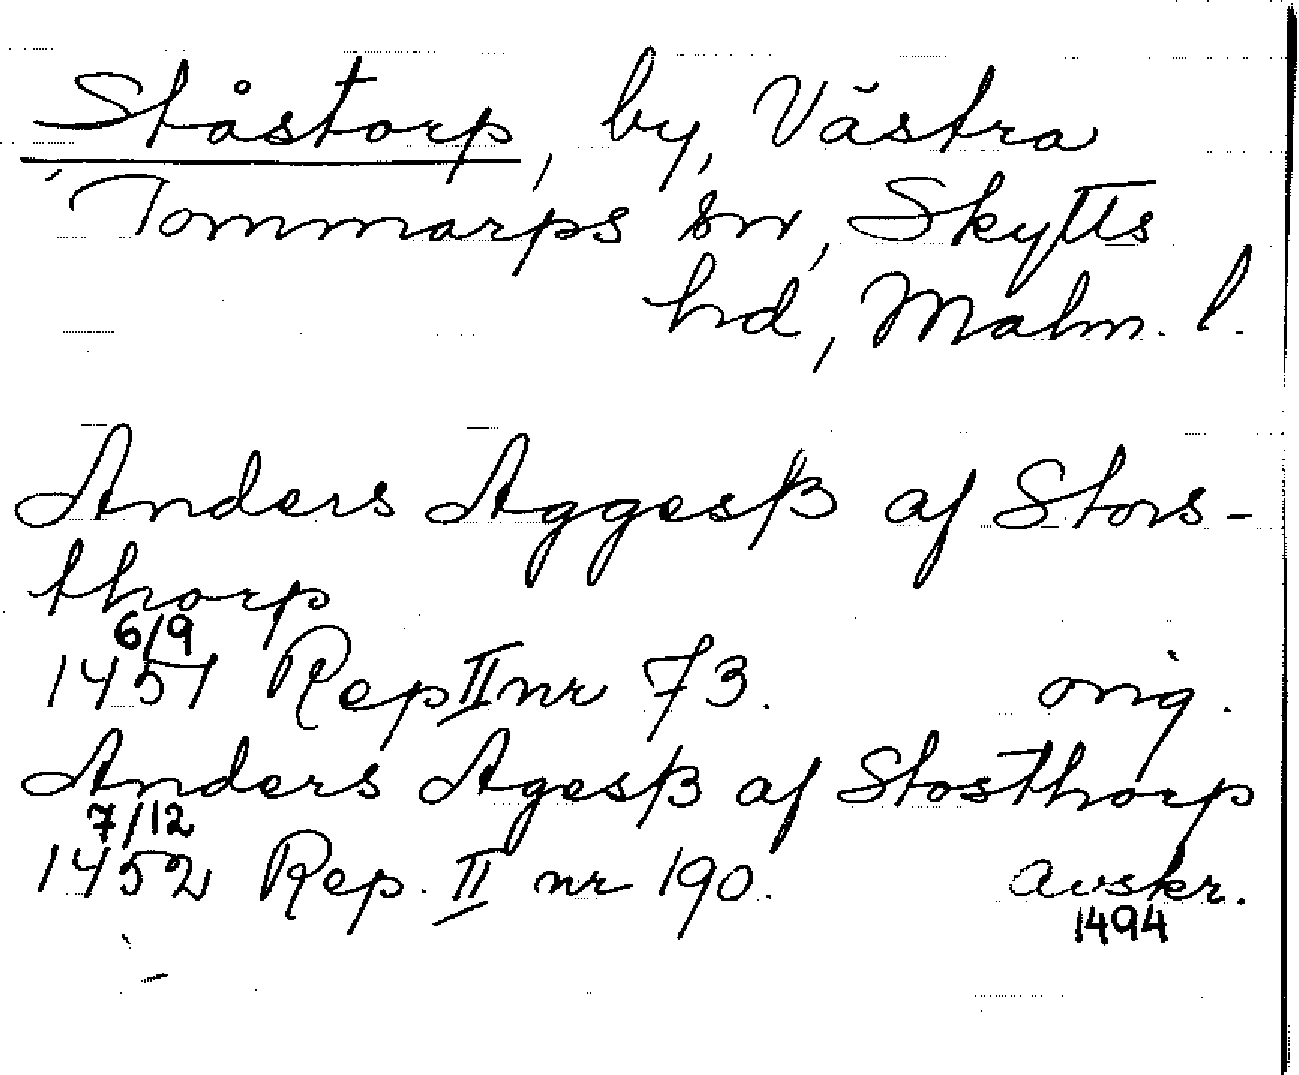 Ståstorp, by, Västra
Tommarps sn, Skytts
hd, Malm. l.
Anders Aggesß af Stors-
thorp
6/9
1451 Rep II nr 73. orig.
Anders Agesß af Stosthorp
7/12
1452 Rep. II nr 190. avskr.
1494